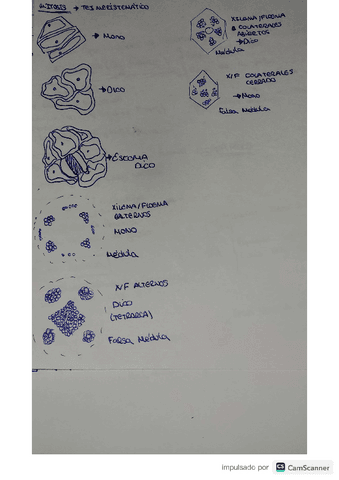 MITOSIS → TEJ MERISTEMÁTICO
→ Mono
→ Dico
→ ESTOMA
DICO
XILEMA/FLOEMA
ALTERNOS
MONO
Médula
X/F ALTERNOS
DICO
(TETRARCA)
Falsa Médula
XILEMA/FLOEMA
COLATERALES
ABIERTOS
→ Dico
Médula
X/F COLATERALES
CERRADO
→ Mono
Falsa Médula
impulsado por CS CamScanner